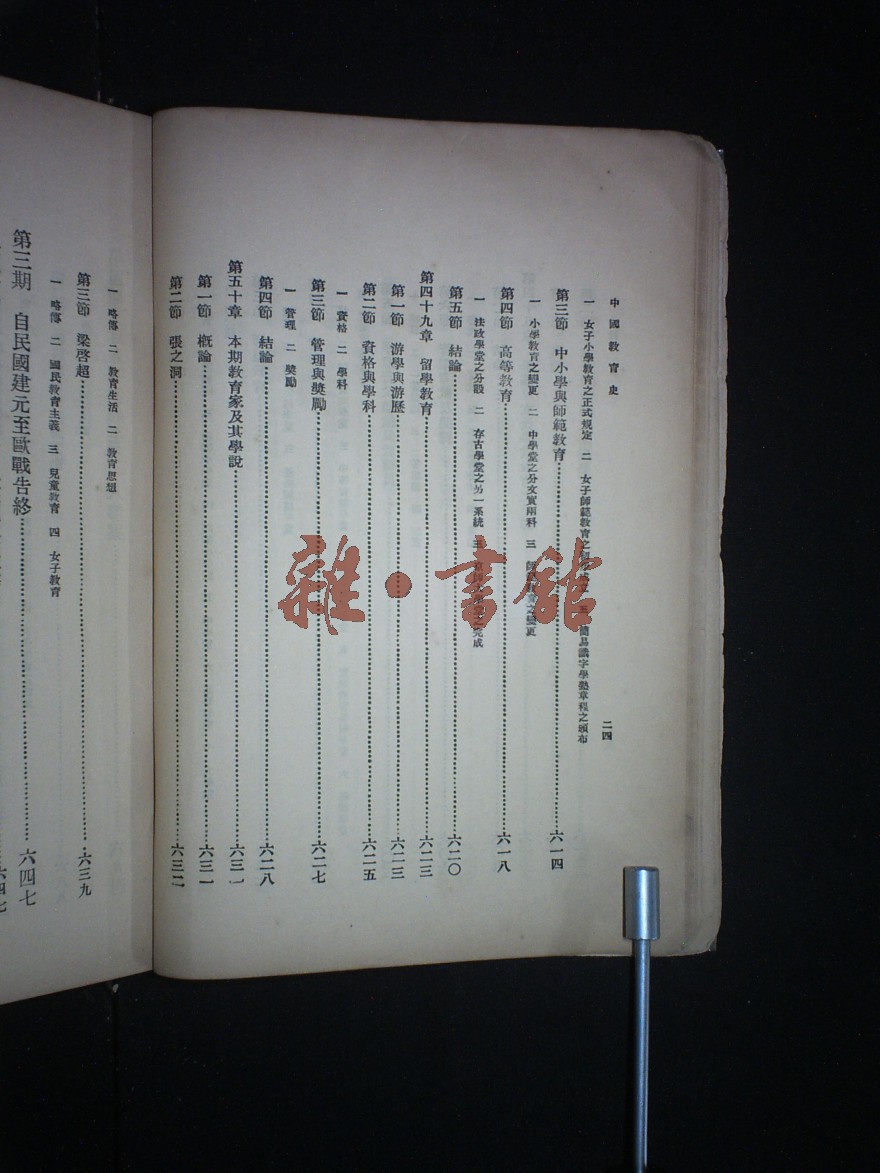 中國教育史
二四
一 女子小學教育之正式規定 二 女子師範教育之 三 簡易識字學塾章程之頒布
第三節 中小學與師範教育……六一四
一 小學教育之變更 二 中學堂之分文實兩科 三 師範教育之變更
第四節 高等教育……六一八
一 法政學堂之分設 二 存古學堂之另一系統 三 之完成
第五節 結論……六二〇
第四十九章 留學教育……六二三
第一節 游學與游歷……六二三
第二節 資格與學科……六二五
一 資格 二 學科
第三節 管理與獎勵……六二七
一 管理 二 獎勵
第四節 結論……六二八
第五十章 本期教育家及其學說……六三一
第一節 概論……六三一
第二節 張之洞……六三二
一 略傳 二 教育生活 二 教育思想
第三節 梁啓超……六三九
一 略傳 二 國民教育主義 三 兒童教育 四 女子教育
第三期 自民國建元至歐戰告終……六四七
六四七
雜·書館